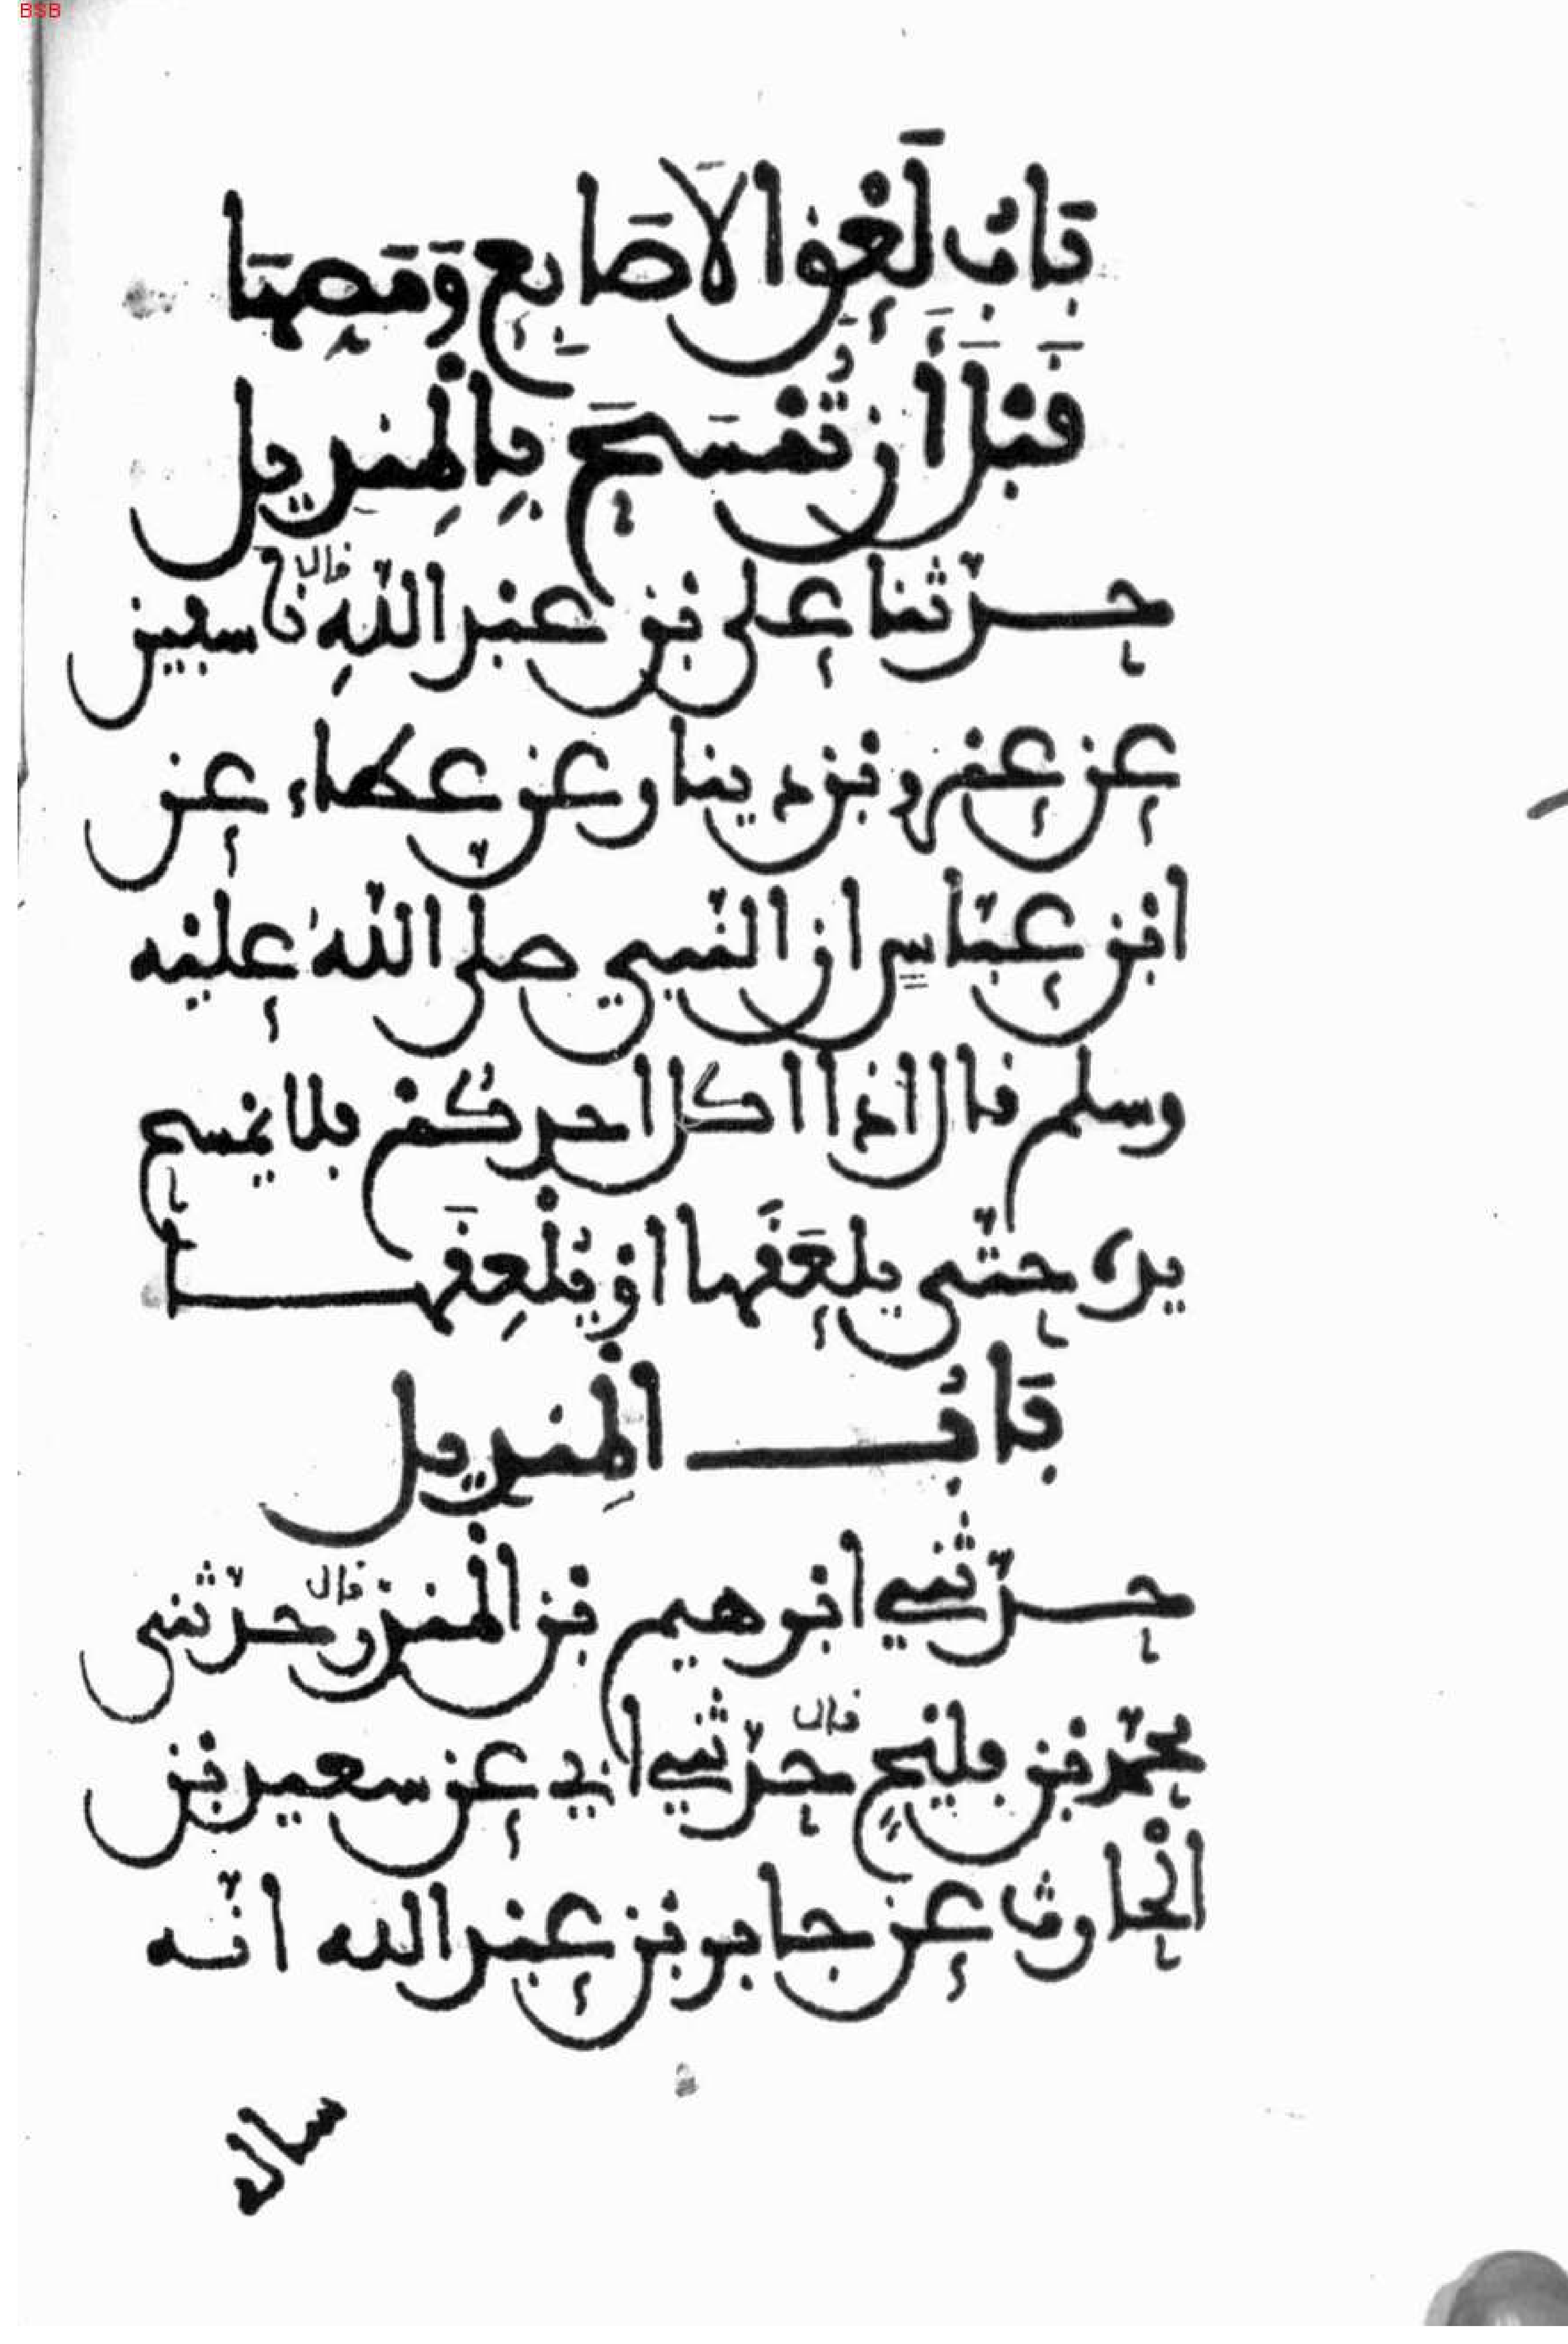 BSB
بَابُ لَعْقِ الَاصَابِعِ وَمَصِّهَا
قَبْلَ أَن تُمْسَحَ بِالْمِنديل
حدّثنا علي بن عبد اللّهِ قال نا سفين
عن عمرو بن دينار عن عطاء عن
ابن عبّاسٍ ان النّبي صلى اللّهُ عليْه
وسلم قال اذا اكل احدكُمْ فلا يمسح
يده حتّى يلعَقَها اوْ يُلْعِقَها
بَابُ الْمِنديل
حدّثني ابرهيم بن الْمنذر قال حدّثني
محمّد بن فليْحٍ قال حدّثني ابي عن سعيد بن
الْحارث عن جابر بن عبْد الله انّه
سال